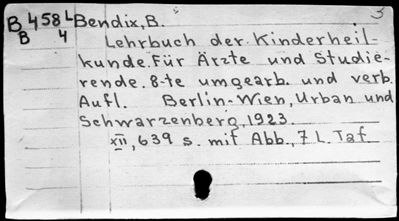 3
B 458 L Bendix, B.
B 4
Lehrbuch der Kinderheil-
kunde. Für Ärzte und Studie-
rende. 8-te umgearb. und verb.
Aufl. Berlin-Wien, Urban und
Schwarzenberg, 1923.
XII, 639 s. mit Abb., 7 L. Taf